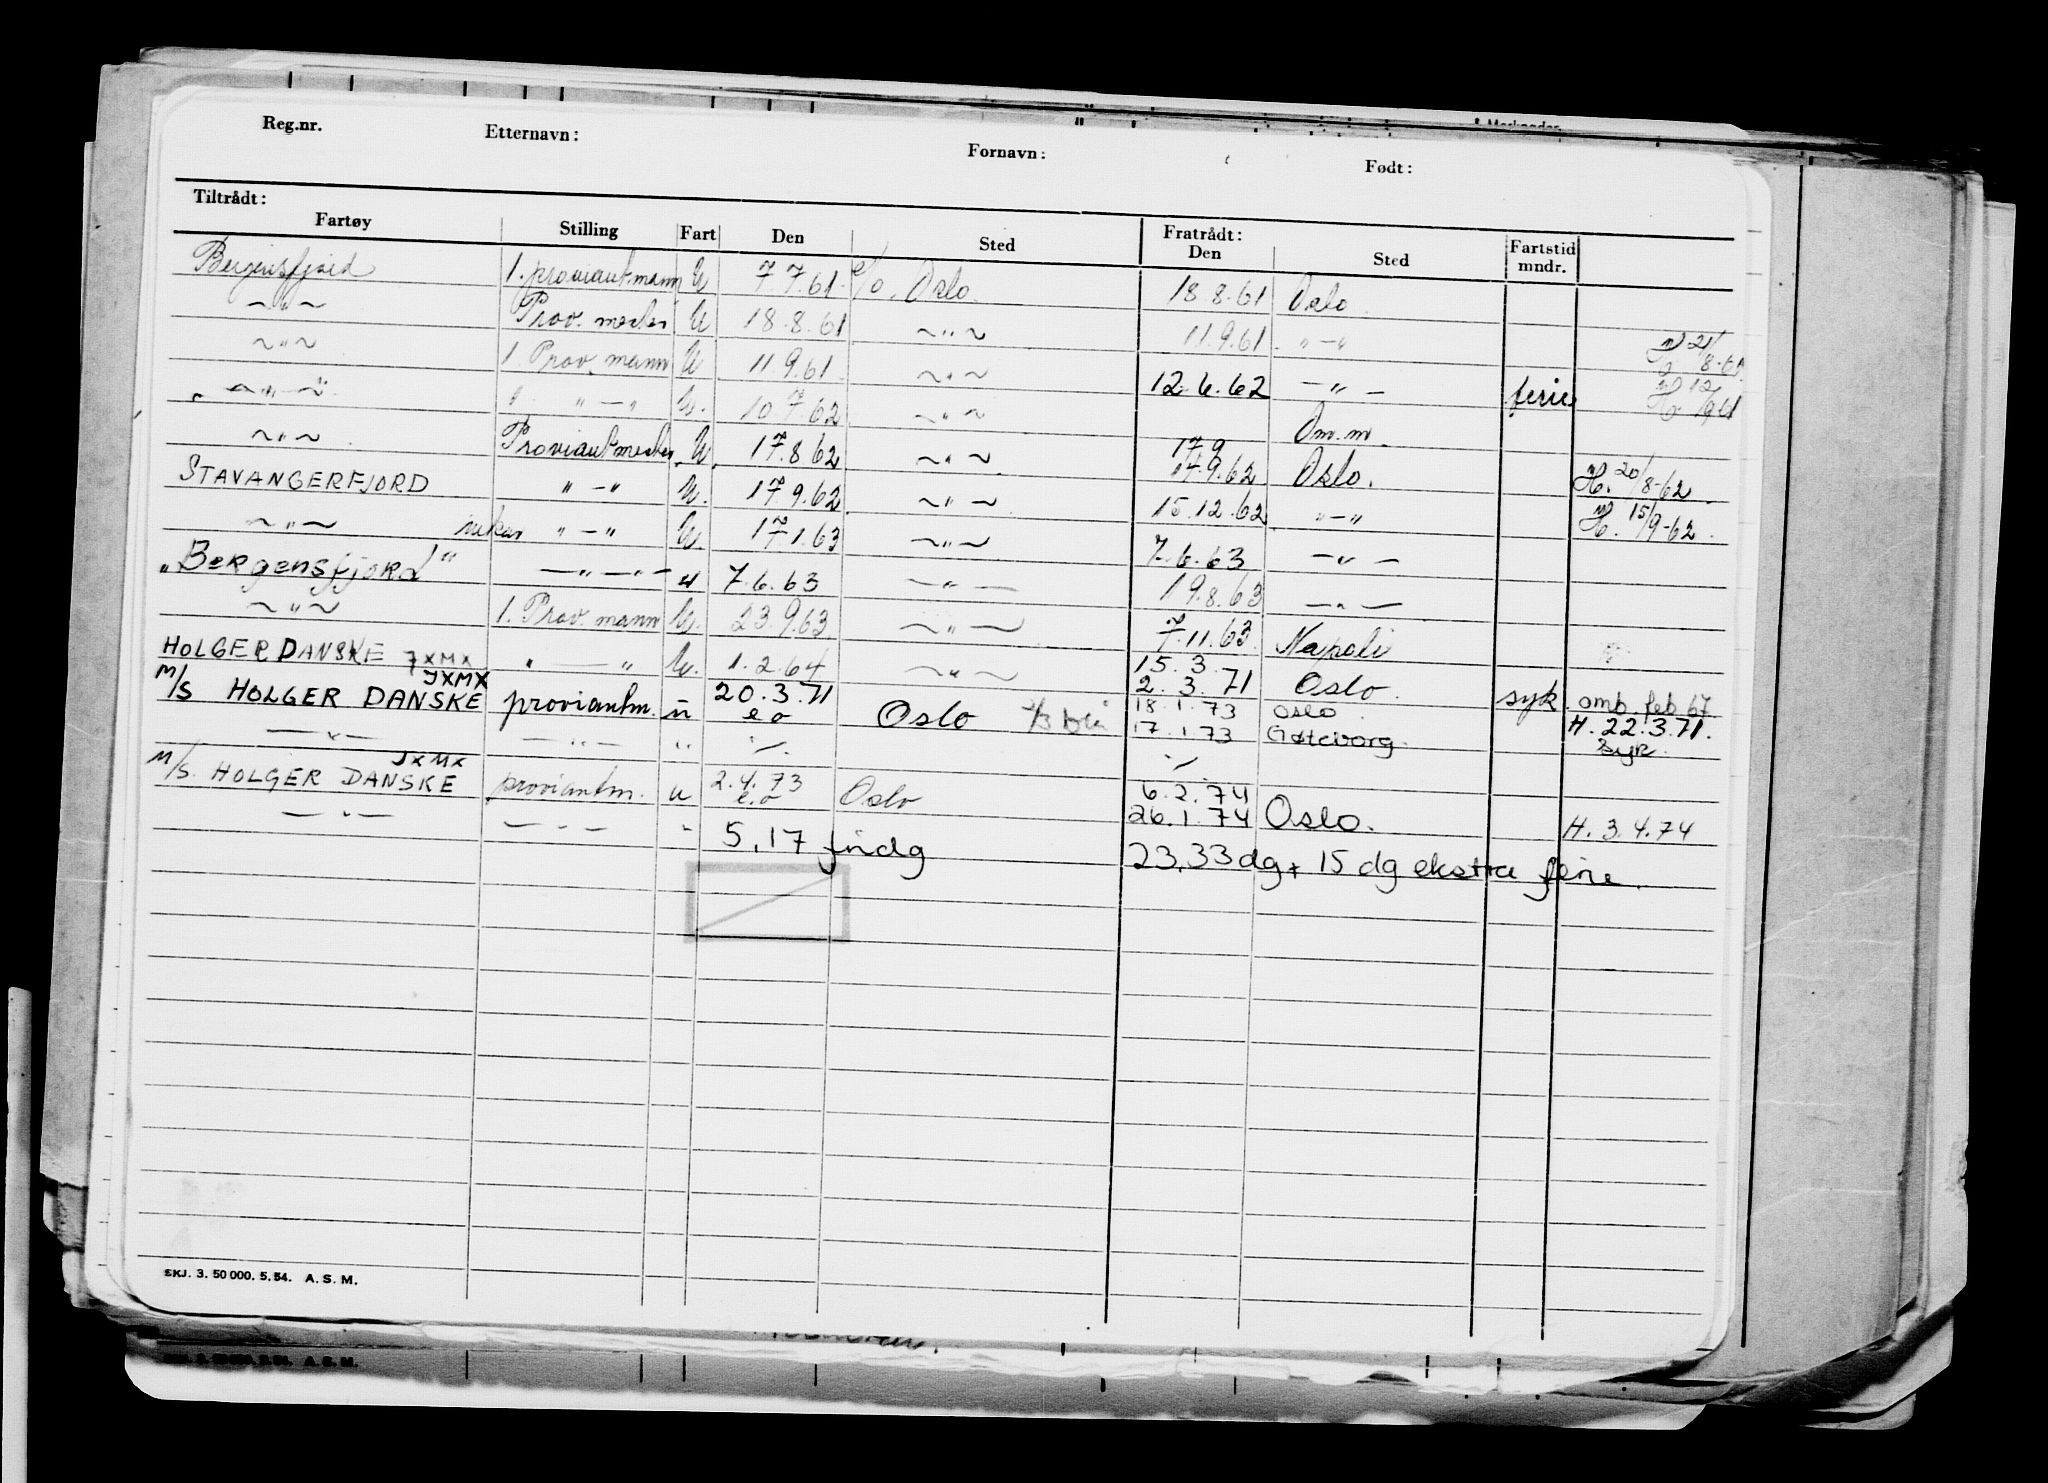 Merknader
Reg.nr. Etternavn: Fornavn: Født:
Tiltrådt: Fratrådt:
Fartøy Stilling Fart Den Sted Den Sted Fartstid mndr.
Bergensfjord 1. proviantmann U 7.7.61 e/o. Oslo 18.8.61 Oslo
~"~ Prov. mester U 18.8.61 ~"~ 11.9.61 "–" 21/8-61
~"~ 1. Prov. mann U 11.9.61 ~"~ 12.6.62 –"– ferie H. 12/9-61
~"~ " "–" U. 10.7.62 ~"~ Om.m.
~"~ Proviantmester U. 17.8.62 ~"~ 17.9 14.9.62 Oslo. H. 20/8-62
STAVANGERFJORD "–" U. 17.9.62 ~"~ 15.12.62 "–" H. 15/9-62.
~"~ "–" U. 17.1.63 ~"~ 7.6.63 –"–
"Bergensfjord" –"–"– u 7.6.63 –"– 19.8.63 –"–
~"~ 1. Prov. mann U. 23.9.63 ~"~ 7.11.63 Napoli
HOLGER DANSKE JXMX "–" U. 1.2.64 ~"~ 15.3. 2.3.71 Oslo. syk omb. feb 67
M/S HOLGER DANSKE JXMX proviantm. u 20.3.71 e o Oslo 18.1.73 Oslo H. 22.3.71.
–"– –"– " 17.1.73 Gøteborg syk.
M/S. HOLGER DANSKE JXMX proviantm. u 2.4.73 e.o Oslo 6.2.74
–"– –"– " 26.1.74 Oslo. H. 3.4.74
5,17 fridg 23,33 dg + 15 dg ekstra ferie.
SKJ. 3. 50 000. 5.54. A. S. M.
A. S. M.